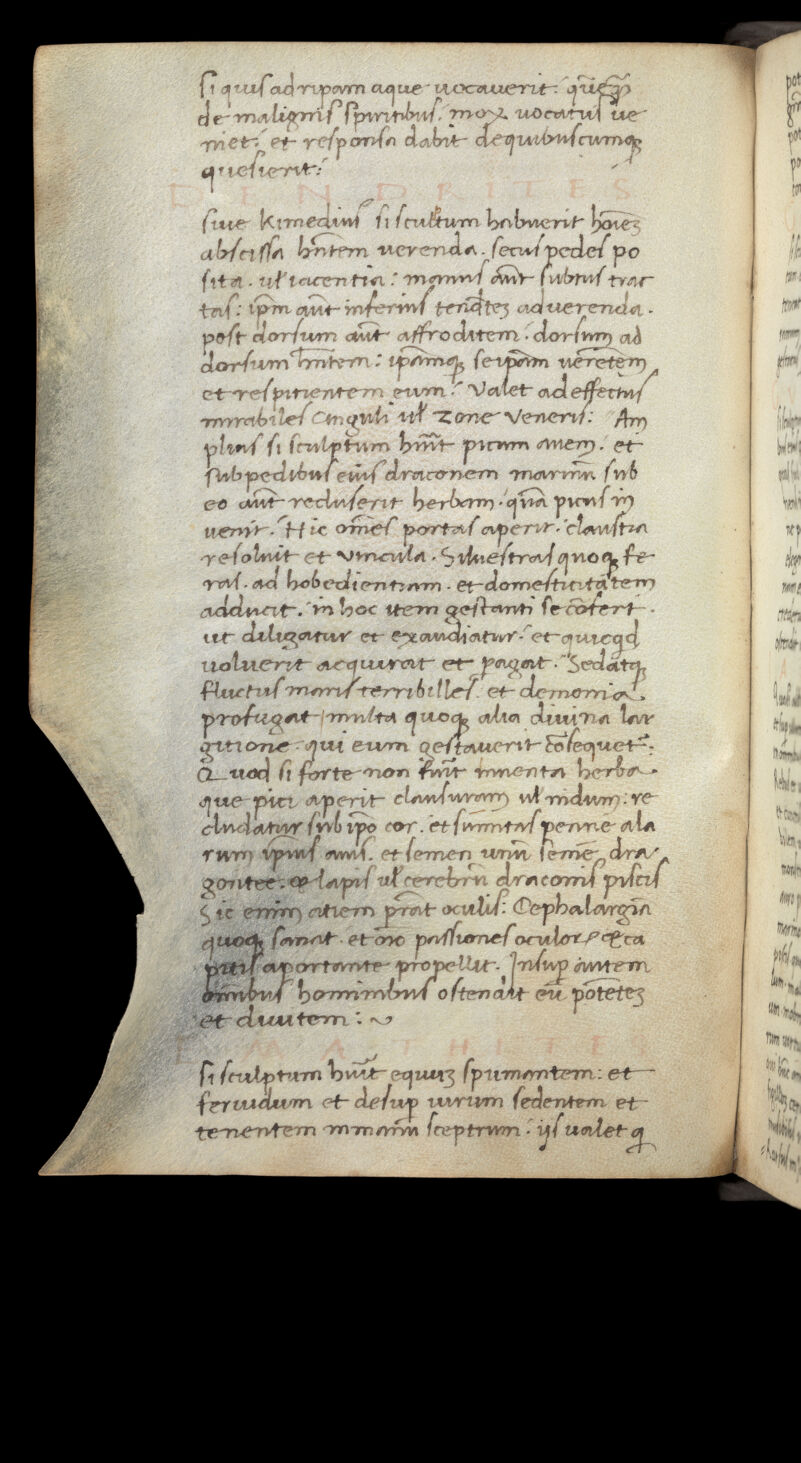 si quis ad ripam aque uocauerit: quēqȝ
de malignis spiritibus: mox uocatus ue
niet: et responsa dabit de quibuscumqȝ
quesierit:
DENDRITES
siue kimedius si scultum habuerit hoīeȝ
abscissa hn̄tem uerenda. secus pedes po
sita. ul̵ iacentia: manus aūt subtus trac
tas: ip̄m aūt inferius tendēteȝ ad uerenda.
post dorsum aūt affroditem: dorsum ad
dorsum hn̄tem: ip̄amqȝ seip̄am
et respitientem eum: Valet ad effectus
mirabiles cinguli ul̵ zone Veneris: Am
plius si sculptum hūit picum auem: et
sub pedibus eius draconem marinū sub
eo aūt recluserit herbam: quā picus in
uenit. Hic omēs portas aperit: claustra
resoluit et vincula. Siluestras quoqȝ fe
ras. ad hobedientiam. et domesticitatem
adducit. in hoc item gestanti se cōfert.
ut diligatur et exaudiatur: et quicqd
uoluerit acquirat et pagat. Sedatqȝ
fluctus maris terribilles. et demonia
profugat multa quoqȝ alia diuina lar
gitione. qui eum gestauerit cōsequet:
Quod si forte non fuīt inuenta herba
que pici aperit clausuram ul̵ nidum: re
cludatur sub ip̄o cor. et sūmitas penne ala
rum ip̄ius auis. et semen unū semē dra
gontee. lapis ul̵ cerebrū draconis piscis
Sic enim atiem p̄rat oculis: Cephalargiā
quoqȝ sanat et om̄s passiones oculor & ca
pitis aportante propellit. Insup autem
omībus hominibus ostendit eū potēteȝ
et diuitem:
EMATHITES
si sculptum hūit equuȝ spumantem: et
feruidum et desup uirum sedentem et
tenentem in manu sceptrum: ijs ualet q